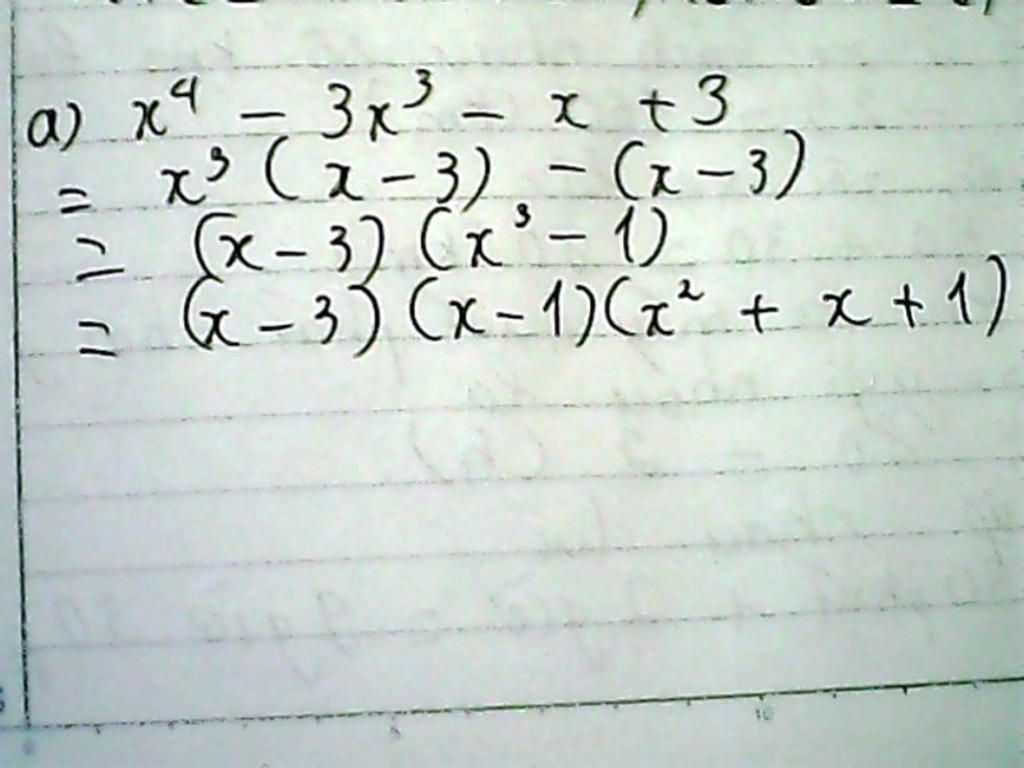 a) x⁴ - 3x³ - x + 3
= x³ (x - 3) - (x - 3)
= (x - 3) (x³ - 1)
= (x - 3) (x - 1)(x² + x + 1)